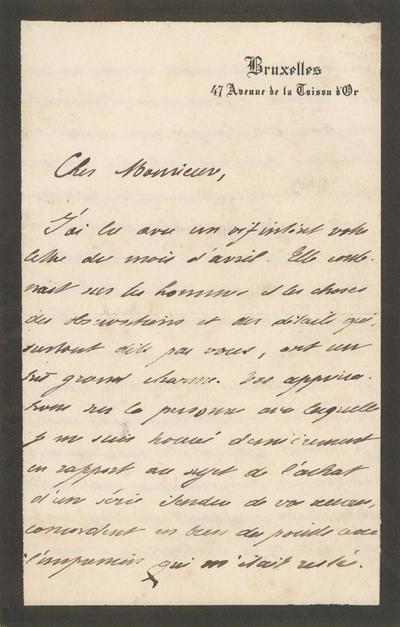 Bruxelles
47 Avenue de la Toison d'Or
Cher Monsieur,
J'ai lu avec un vif intérêt votre
lettre du mois d'avril. Elle conte-
nait sur les hommes et les choses
des observations et des détails qui,
surtout dits par vous, ont un
très grand charme. Vos apprécia-
tions sur la personne avec laquelle
je me suis trouvé dernièrement
en rapport au sujet de l'achat
d'une série étendue de vos œuvres,
concordent en bien des points avec
l'impression qui m'était restée.